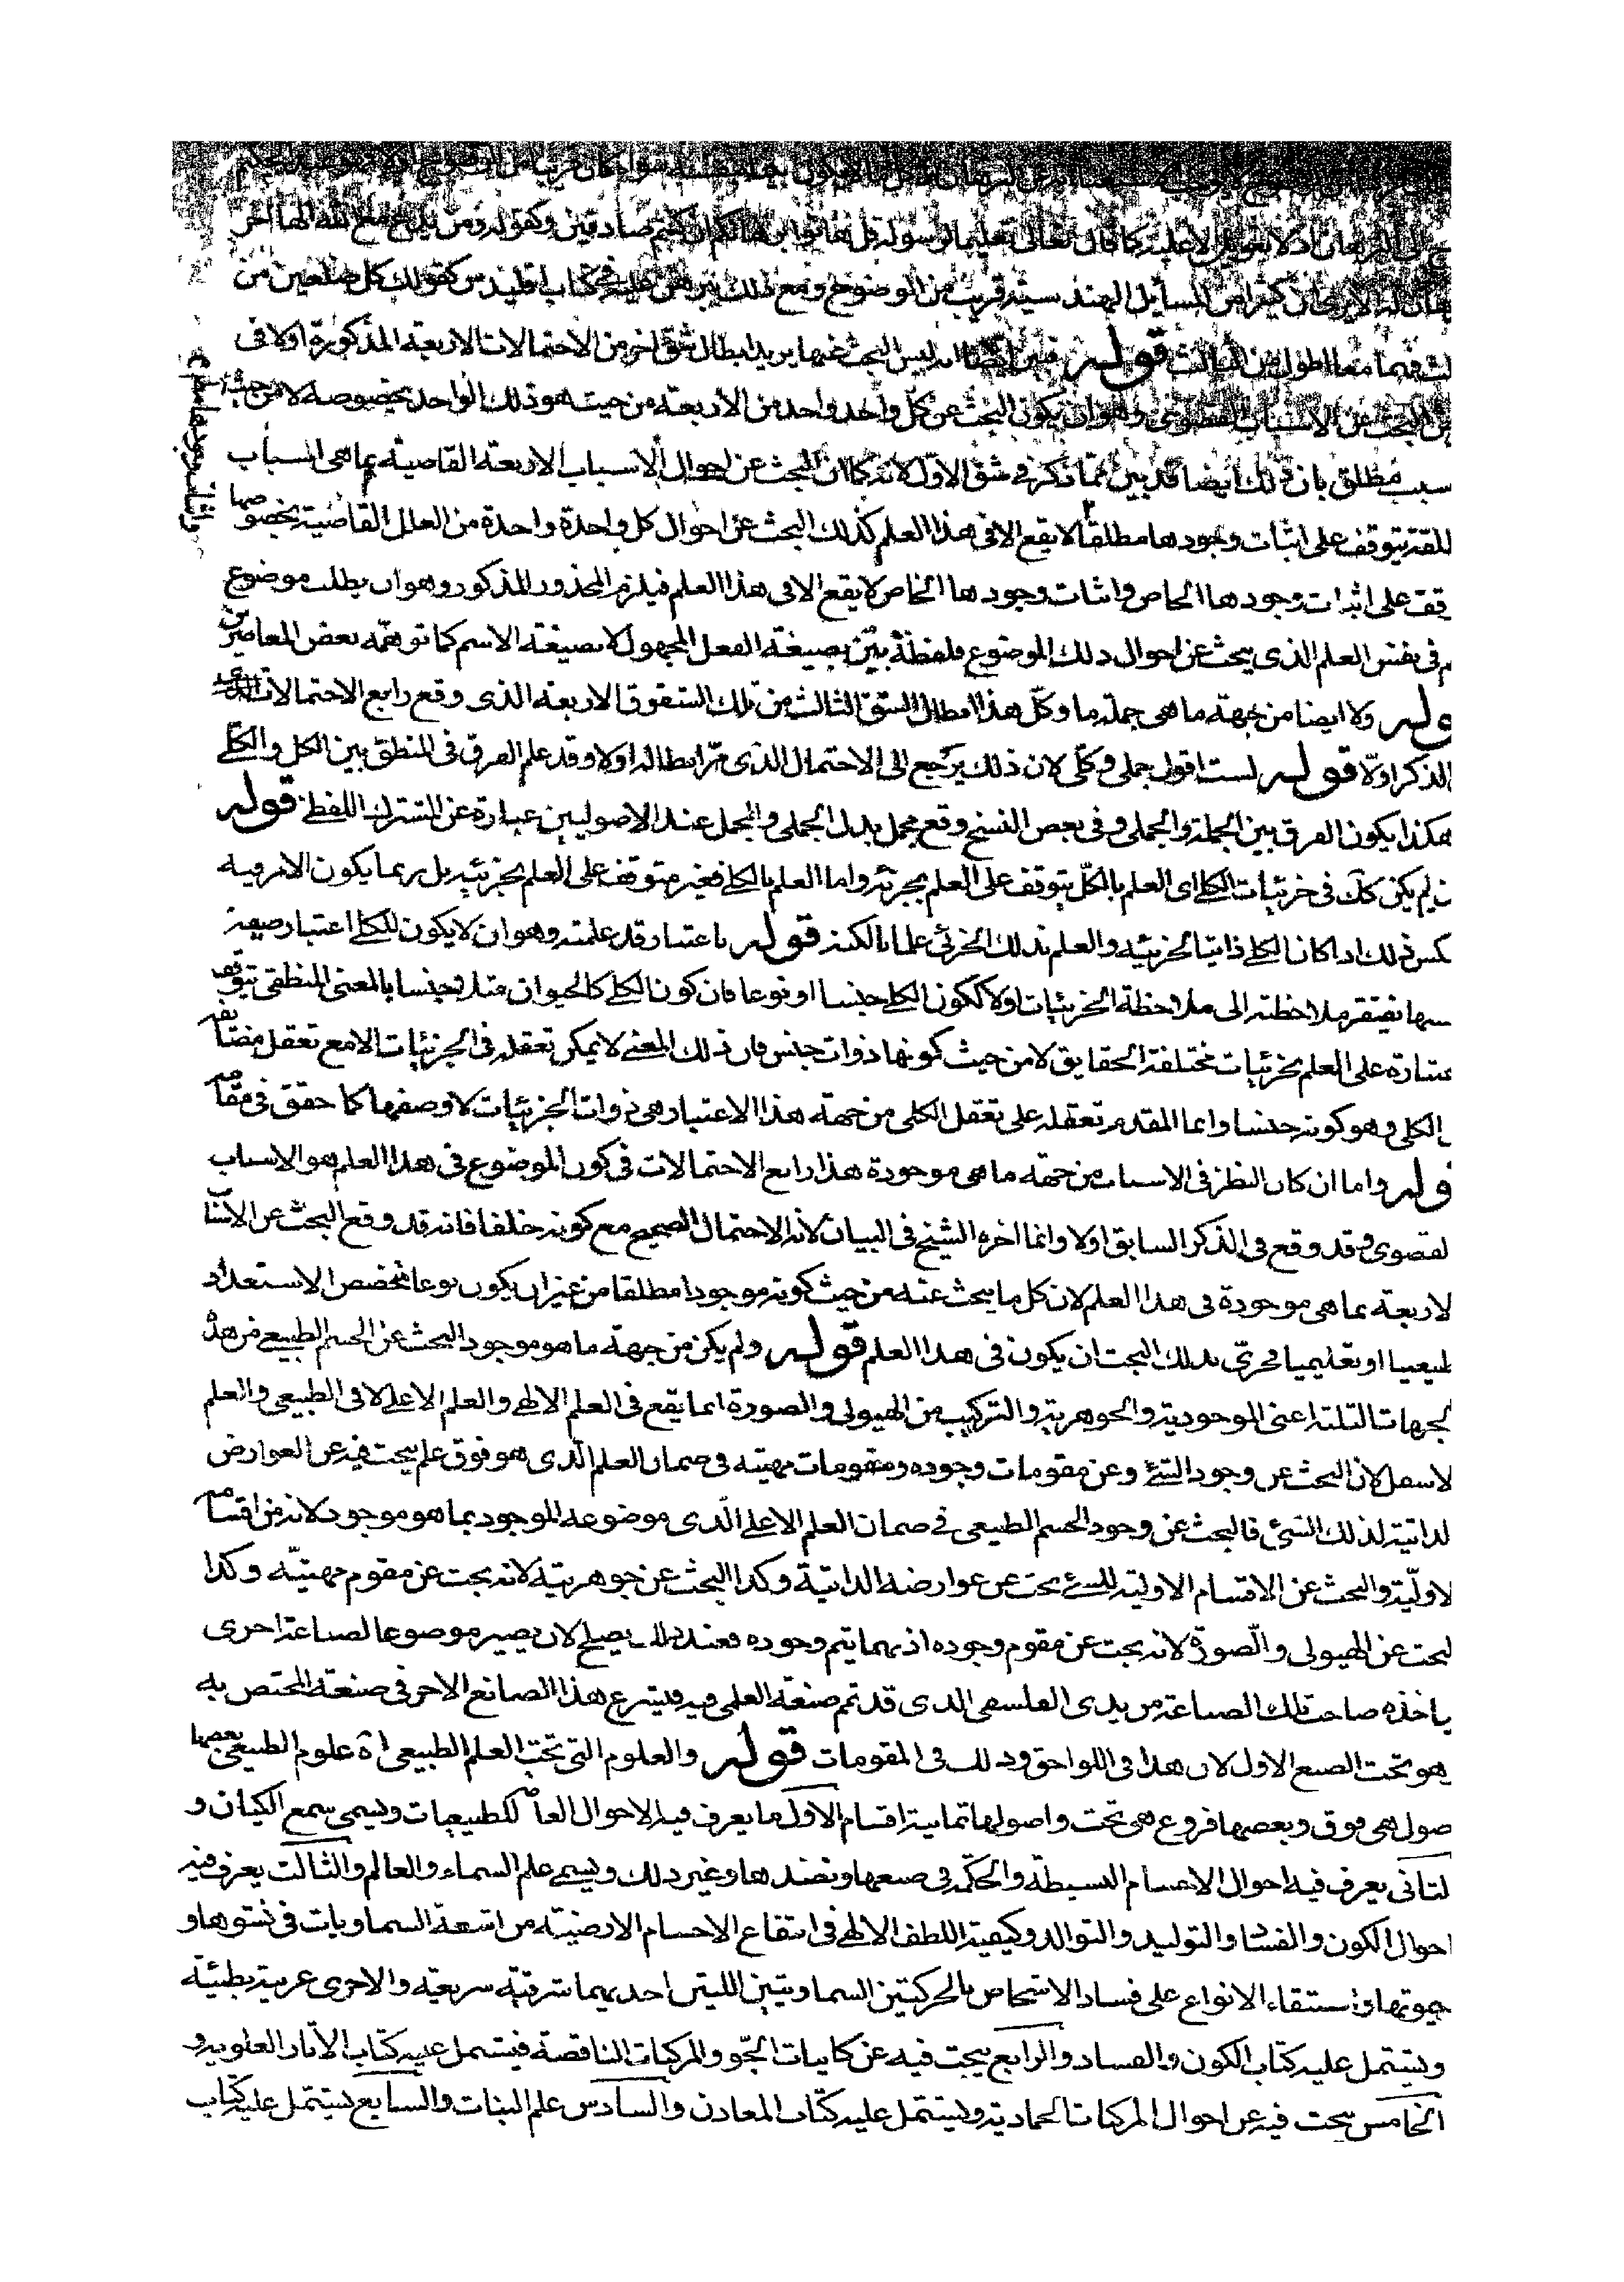 اذ لا تعويل الا عليه كما قال تعالى تعليما لرسوله قل هاتوا برهانكم ان كنتم صادقين وكقوله ومن يدع مع الله الها اخر
كثيرا من المسايل الهندسية قريب من الوضوح ومع ذلك يبرهن عليه في كتاب اقليدس كقولك كل ضلعين من
لث فهما معا اطول من الثالث قوله فبين ايضا انه ليس البحث عنها يريد ابطال شق اخر من الاحتمالات الاربعة المذكورة اولا في
البحث عن الاسباب القصوى وهو ان يكون البحث عن كل واحد واحد من الاربعة من حيث هو ذلك الواحد بخصوصه لا من حيث
سبب مطلق بان ذلك ايضا قد بين مما ذكر في شق الاول لانه كما ان البحث عن احوال الاسباب الاربعة القاصية بما هي اسباب
للقه يتوقف على اثبات وجودها مطلقا لا يقع الا في هذا العلم كذلك البحث عن احوال كل واحدة واحدة من العلل القاصية بخصوصها
قف على اثبات وجودها الخاص واثبات وجودها الخاص لا يقع الا في هذا العلم فيلزم المحذور المذكور وهو ان يطلب موضوع
م في نفس العلم الذي يبحث عن احوال ذلك الموضوع فلفظة بين بصيغة الفعل المجهول لا بصيغة الاسم كما توهمه بعض المعاصرين
وله ولا ايضا من جهة ما هي جملة ما وكل هذا ابطال الشق الثالث من تلك الشقوق الاربعة الذي وقع رابع الاحتمالات
الذكر اولا قوله لست اقول جملي وكلي لان ذلك يرجع الى الاحتمال الذي مر ابطاله اولا وقد علم الفرق في المنطق بين الكل والكلي
هكذا يكون الفرق بين الجملة والجملي وفي بعض النسخ وقع مجمل بدل الجملي والمجمل عند الاصوليين عبارة عن المشترك اللفظي قوله
ن لم يكن كك في جزئيات الكلي اي العلم بالكل يتوقف على العلم بجزئه واما العلم بالكلي فغير متوقف على العلم بجزئيه بل ربما يكون الامر فيه
كس ذلك اذا كان الكلي ذاتيا لجزئيه والعلم بذلك الجزئي علما بالكنه قوله باعتبار قد علمته وهو ان لا يكون للكلي اعتبار صيغة
سها تفتقر ملاحظته الى ملاحظة الجزئيات اولا ككون الكلي جنسا او نوعا فان كون الكلي كالحيوان مثلا جنسا بالمعنى المنطقي يتوقف
عتباره على العلم بجزئيات مختلفة الحقايق لا من حيث كونها ذوات جنس فان ذلك المعنى لا يمكن تعقله في الجزئيات الا مع تعقل مضايفه
الكلي وهو كونه جنسا وانما المقدم تعقله على تعقل الكلي من جهة هذا الاعتبار هي ذوات الجزئيات لا وصفها كما حقق في مقامه
وله واما ان كان النظر في الاسباب من جهة ما هي موجودة هذا رابع الاحتمالات في كون الموضوع في هذا العلم هو الاسباب
لقصوى وقد وقع في الذكر السابق اولا وانما اخره الشيخ في البيان لانه الاحتمال الصحيح مع كونه خلفا فانه قد وقع البحث عن الاسباب
لاربعة بما هي موجودة في هذا العلم لان كل ما يبحث عنه من حيث كونه موجودا مطلقا من غير ان يكون نوعا متخصص الاستعداد
طبيعيا او تعليميا فحري بذلك البحث ان يكون في هذا العلم قوله ولم يكن من جهة ما هو موجود البحث عن الجسم الطبيعي من هذه
لجهات الثلثة اعني الموجودية والجوهرية والتركيب من الهيولى والصورة انما يقع في العلم الالهي والعلم الاعلى لا في الطبيعي والعلم
لاسفل لان البحث عن وجود الشئ وعن مقومات وجوده ومقومات مهيته في ضمان العلم الذي هو فوق علم يبحث فيه عن العوارض
لذاتية لذلك الشئ فالبحث عن وجود الجسم الطبيعي في ضمان العلم الاعلى الذي موضوعه الموجود بما هو موجود لانه من اقسامه
لاولية والبحث عن الاقسام الاولية للشئ بحث عن عوارضه الذاتية وكذا البحث عن جوهريته لانه بحث عن مقوم مهيته وكذا
لبحث عن الهيولى والصورة لانه بحث عن مقوم وجوده اذ بهما يتم وجوده فعند ذلك يصلح لان يصير موضوعا لصناعة اخرى
ياخذه صاحب تلك الصناعة من يدى الفلسفي الذي قد تم صنعة العلمي فيه فيشرع هذا الصانع الاخر في صنعته المختص به
هو تحت الصنع الاول لان هذا في اللواحق وذلك في المقومات قوله والعلوم التي تحت العلم الطبيعي اة علوم الطبيعي بعضها
صول هي فوق وبعضها فروع هي تحت واصولها ثمانية اقسام الاول ما يعرف فيه الاحوال العامة للطبيعيات ويسمى سمع الكيان و
لثاني يعرف فيه احوال الاجسام البسيطة والحكمة في صنعها ونضدها وغير ذلك ويسمى علم السماء والعالم والثالث يعرف فيه
احوال الكون والفساد والتوليد والتوالد وكيفية اللطف الالهي في انتفاع الاجسام الارضية من اشعة السماويات في نشوها و
حيوتها واستبقاء الانواع على فساد الاشخاص بالحركتين السماويتين اللتين احديهما شرقية سريعة والاخرى غربية بطيئة
ويشتمل عليه كتاب الكون والفساد والرابع يبحث فيه عن كاينات الجو والمركبات الناقصة فيشتمل عليه كتاب الاثار العلوية و
الخامس يبحث فيه عن احوال المركبات الجمادية ويشتمل عليه كتاب المعادن والسادس علم النبات والسابع يشتمل عليه كتاب